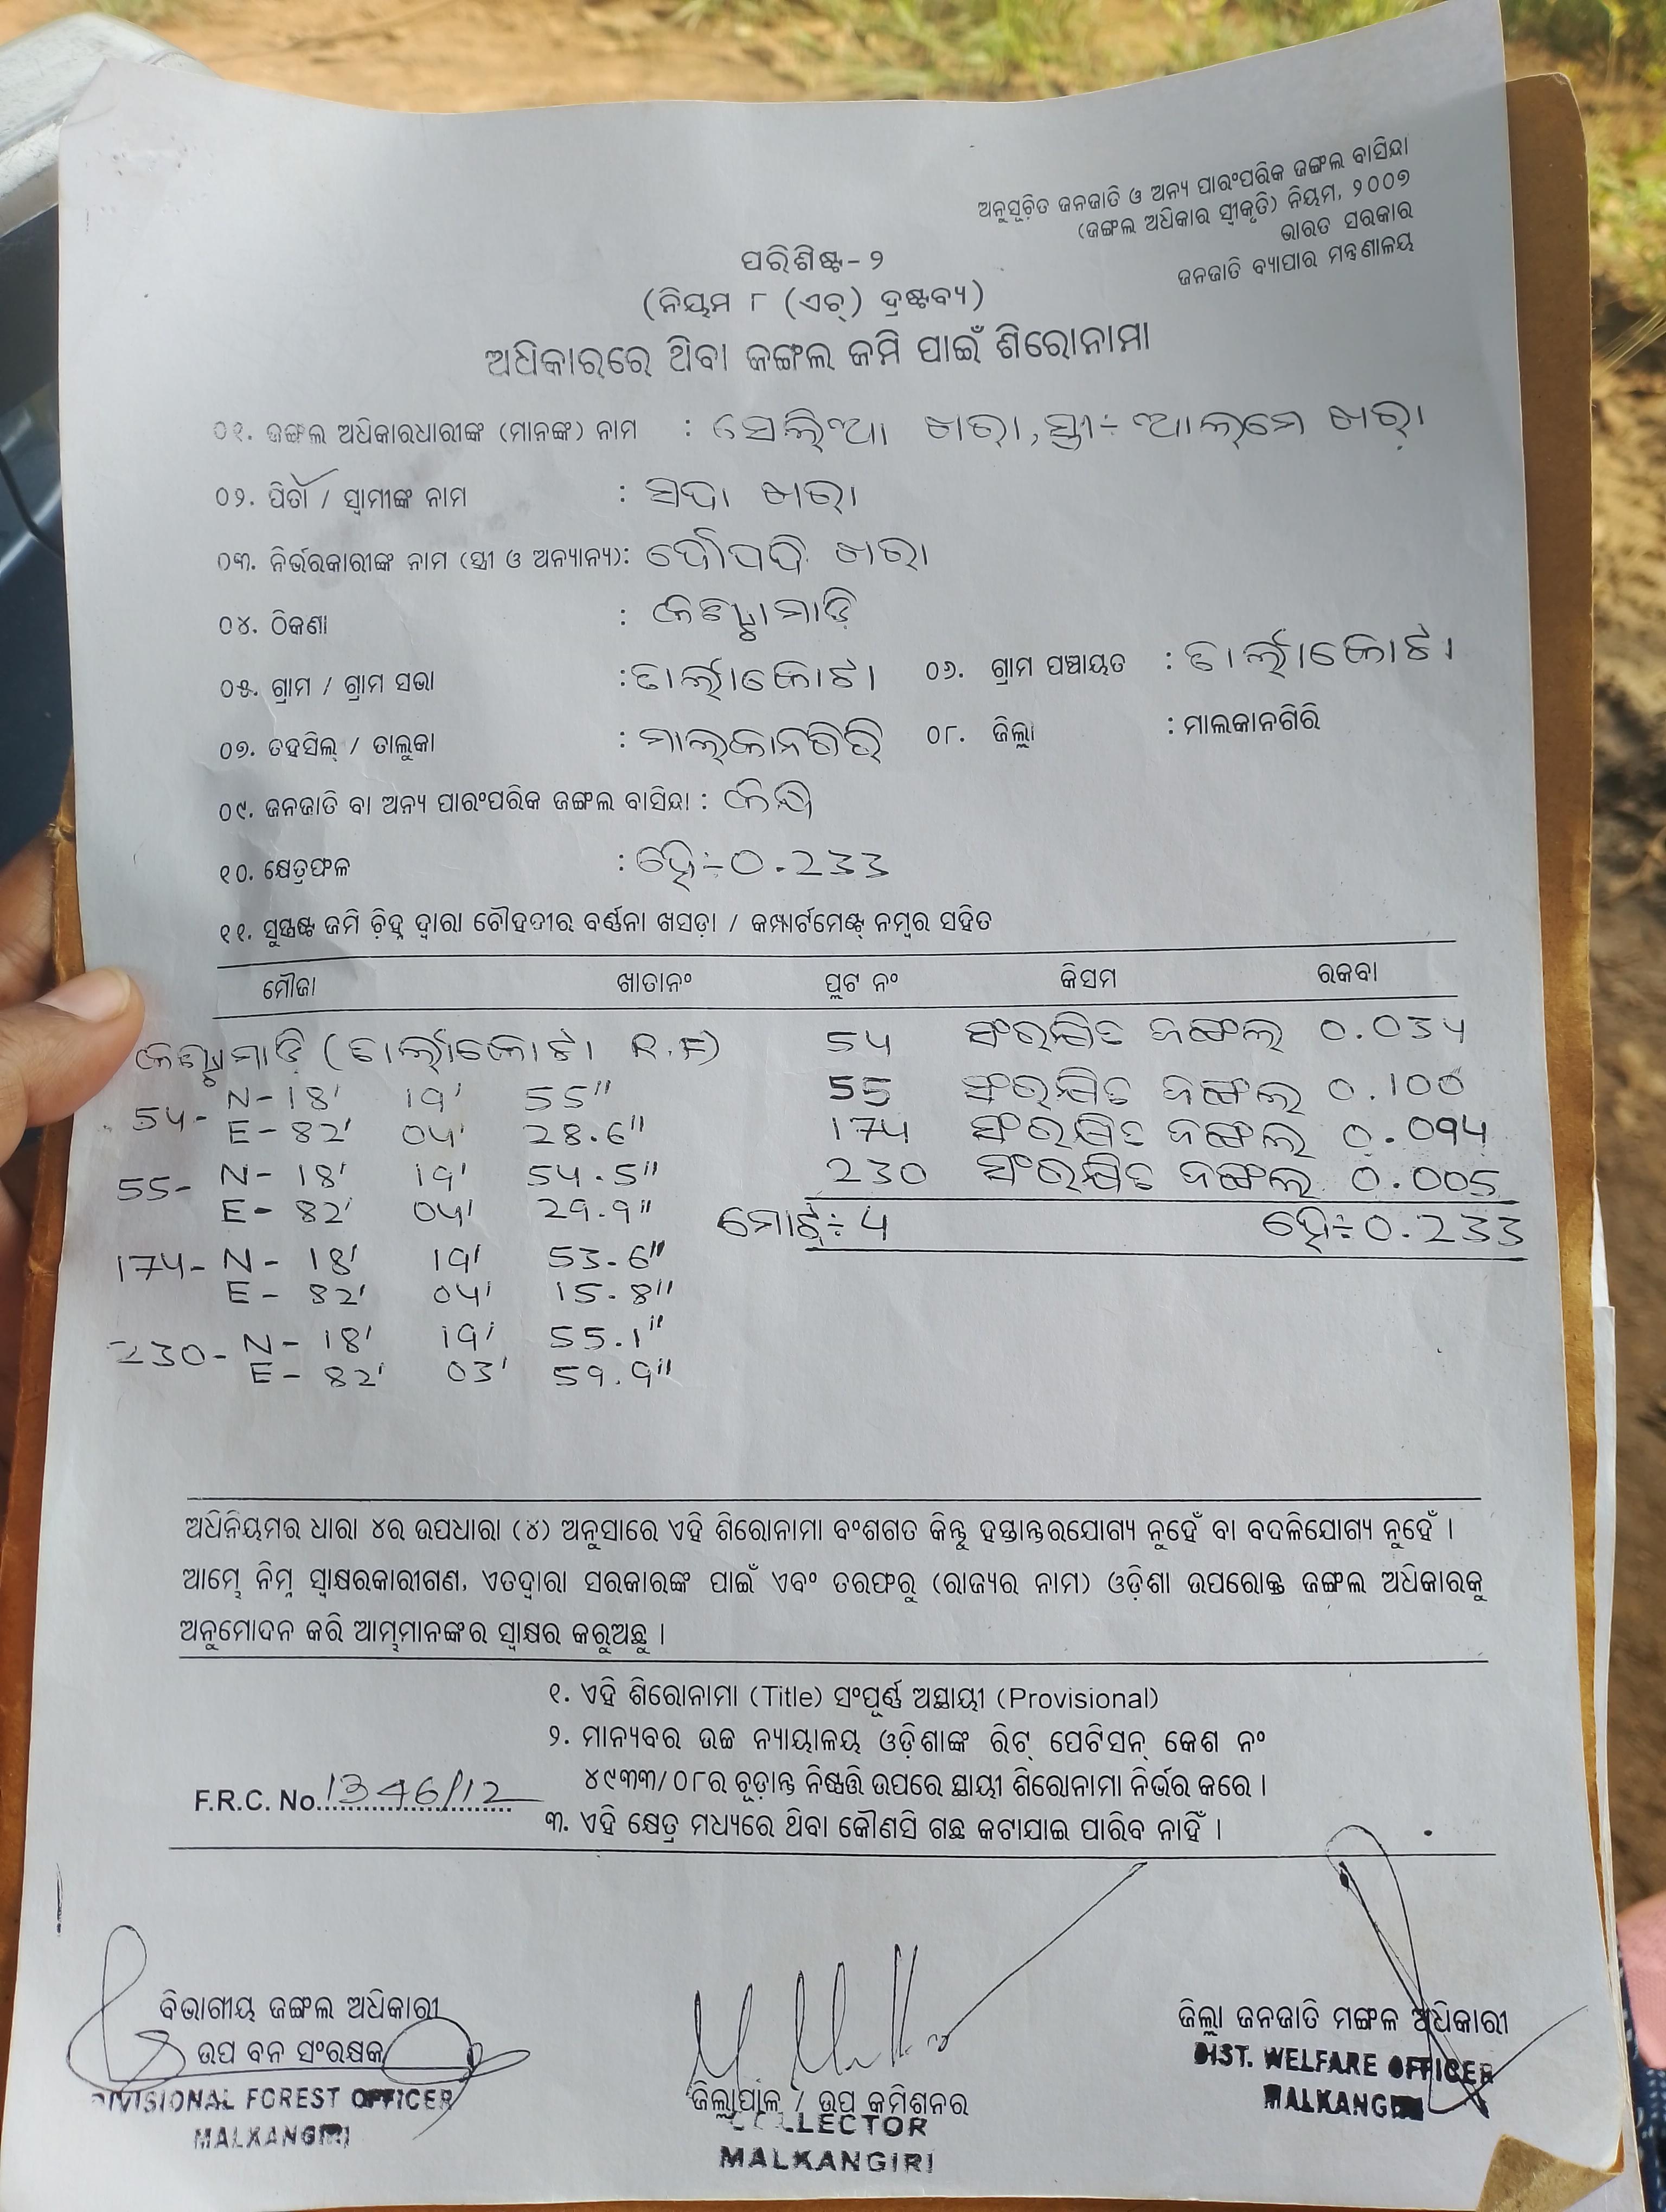 ଅନୁସୂଚିତ ଜନଜାତି ଓ ଅନ୍ୟ ପାରଂପରିକ ଜଙ୍ଗଲ ବାସିନ୍ଦା
(ଜଙ୍ଗଲ ଅଧିକାର ସ୍ୱୀକୃତି) ନିୟମ, ୨୦୦୭
ଭାରତ ସରକାର
ଜନଜାତି ବ୍ୟାପାର ମନ୍ତ୍ରଣାଳୟ
ପରିଶିଷ୍ଟ-୨
(ନିୟମ ୮ (ଏଚ୍) ଦ୍ରଷ୍ଟବ୍ୟ)
ଅଧିକାରରେ ଥିବା ଜଙ୍ଗଲ ଜମି ପାଇଁ ଶିରୋନାମା
୦୧. ଜଙ୍ଗଲ ଅଧିକାରଧାରୀଙ୍କ (ମାନଙ୍କ) ନାମ : ସେଲିଆ ଖରା, ସ୍ତ୍ରୀ÷ ଆଲମେ ଖରା
୦୨. ପିତା / ସ୍ୱାମୀଙ୍କ ନାମ : ସଦା ଖରା
୦୩. ନିର୍ଭରକାରୀଙ୍କ ନାମ (ସ୍ତ୍ରୀ ଓ ଅନ୍ୟାନ୍ୟ): ଖରା
୦୪. ଠିକଣା :
୦୫. ଗ୍ରାମ / ଗ୍ରାମ ସଭା : ଟାର୍ଲାକୋଟା ୦୬. ଗ୍ରାମ ପଞ୍ଚାୟତ : ଟାର୍ଲାକୋଟା
୦୭. ତହସିଲ୍ / ତାଲୁକା : ମାଲକାନଗିରି ୦୮. ଜିଲ୍ଲା : ମାଲକାନଗିରି
୦୯. ଜନଜାତି ବା ଅନ୍ୟ ପାରଂପରିକ ଜଙ୍ଗଲ ବାସିନ୍ଦା :
୧୦. କ୍ଷେତ୍ରଫଳ : ହେ÷0.233
୧୧. ସୁସ୍ପଷ୍ଟ ଜମି ଚିହ୍ନ ଦ୍ୱାରା ଚୌହଦୀର ବର୍ଣ୍ଣନା ଖସଡ଼ା / କମ୍ପାର୍ଟମେଣ୍ଟ୍ ନମ୍ବର ସହିତ
ମୌଜା ଖାତାନଂ ପ୍ଲଟ ନଂ କିସମ ରକବା
(ଟାର୍ଲାକୋଟା R.F) 54 ସଂରକ୍ଷିତ ଜଙ୍ଗଲ 0.034
54- N-18' 19' 55" 55 ସଂରକ୍ଷିତ ଜଙ୍ଗଲ 0.100
E-82' 04' 28.6" 174 ସଂରକ୍ଷିତ ଜଙ୍ଗଲ 0.094
55- N-18' 19' 54.5" 230 ସଂରକ୍ଷିତ ଜଙ୍ଗଲ 0.005
E-82' 04' 29.9" ମୋଟ÷ 4 ହେ÷0.233
174- N-18' 19' 53.6"
E-82' 04' 15.8"
230- N-18' 19' 55.1"
E-82' 03' 59.9"
ଅଧିନିୟମର ଧାରା ୪ର ଉପଧାରା (୪) ଅନୁସାରେ ଏହି ଶିରୋନାମା ବଂଶଗତ କିନ୍ତୁ ହସ୍ତାନ୍ତରଯୋଗ୍ୟ ନୁହେଁ ବା ବଦଳିଯୋଗ୍ୟ ନୁହେଁ ।
ଆମ୍ଭେ ନିମ୍ନ ସ୍ୱାକ୍ଷରକାରୀଗଣ, ଏତଦ୍ୱାରା ସରକାରଙ୍କ ପାଇଁ ଏବଂ ତରଫରୁ (ରାଜ୍ୟର ନାମ) ଓଡ଼ିଶା ଉପରୋକ୍ତ ଜଙ୍ଗଲ ଅଧିକାରକୁ
ଅନୁମୋଦନ କରି ଆମ୍ଭମାନଙ୍କର ସ୍ୱାକ୍ଷର କରୁଅଛୁ ।
୧. ଏହି ଶିରୋନାମା (Title) ସଂପୂର୍ଣ୍ଣ ଅସ୍ଥାୟୀ (Provisional)
୨. ମାନ୍ୟବର ଉଚ୍ଚ ନ୍ୟାୟାଳୟ ଓଡ଼ିଶାଙ୍କ ରିଟ୍ ପେଟିସନ୍ କେଶ ନଂ
୪୯୩୩/୦୮ର ଚୂଡ଼ାନ୍ତ ନିଷ୍ପତ୍ତି ଉପରେ ସ୍ଥାୟୀ ଶିରୋନାମା ନିର୍ଭର କରେ ।
F.R.C. No. 1346/12
୩. ଏହି କ୍ଷେତ୍ର ମଧ୍ୟରେ ଥିବା କୌଣସି ଗଛ କଟାଯାଇ ପାରିବ ନାହିଁ ।
ବିଭାଗୀୟ ଜଙ୍ଗଲ ଅଧିକାରୀ
ଉପ ବନ ସଂରକ୍ଷକ
DIVISIONAL FOREST OFFICER
MALKANGIRI
ଜିଲ୍ଲାପାଳ / ଉପ କମିଶନର
COLLECTOR
MALKANGIRI
ଜିଲ୍ଲା ଜନଜାତି ମଙ୍ଗଳ ଅଧିକାରୀ
DIST. WELFARE OFFICER
MALKANGIRI